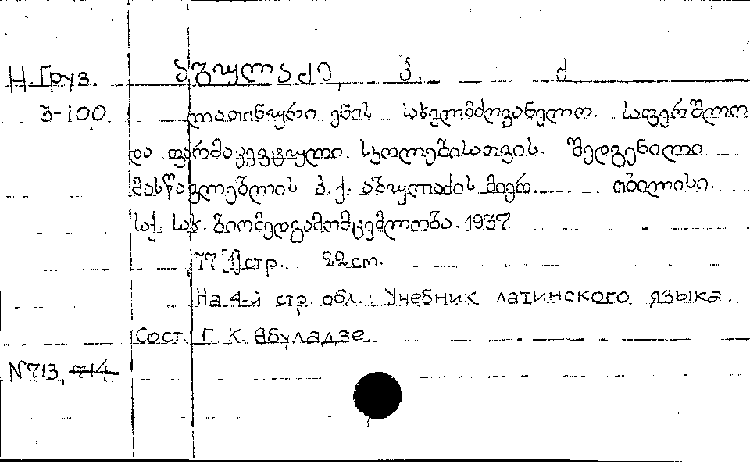 Н. Груз. აბულაძე, გ. ქ
Ъ-100. ლათინური ენის სახელმძღვანელო. საფერშლო
და ფარმაცევტული სკოლებისათვის. შედგენილი
მასწავლებლის გ. ქ. აბულაძის მიერ. თბილისი.
საქ. სახ. ბიომედგამომცემლობა. 1937
77 [1] стр. 22 cm.
На 4-й стр. обл.: Учебник латинского языка.
Сост. Г. К. Абуладзе
N713, 714